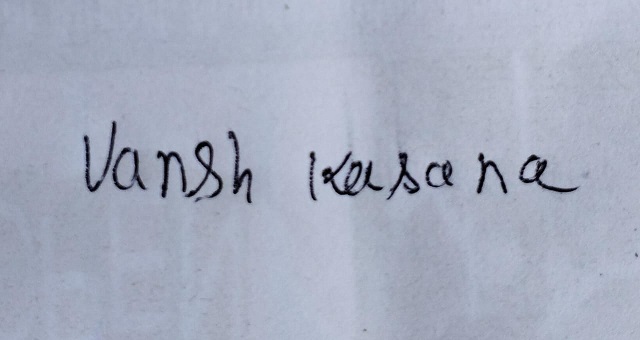 Vansh Kasana